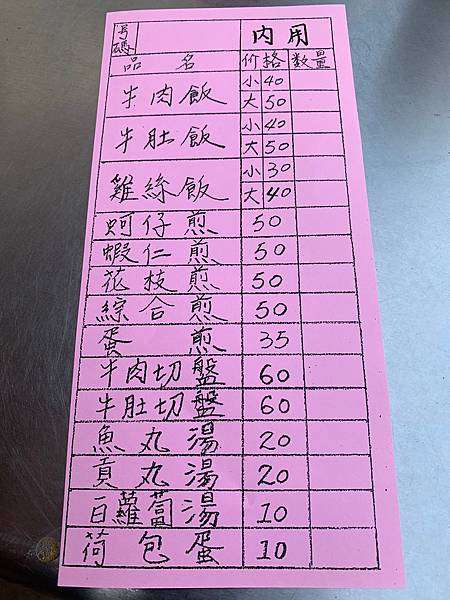 号碼 內用
品名 价格 数量
牛肉飯 小 40
大 50
牛肚飯 小 40
大 50
雞絲飯 小 30
大 40
蚵仔煎 50
蝦仁煎 50
花枝煎 50
綜合煎 50
蛋煎 35
牛肉切盤 60
牛肚切盤 60
魚丸湯 20
貢丸湯 20
白蘿蔔湯 10
荷包蛋 10